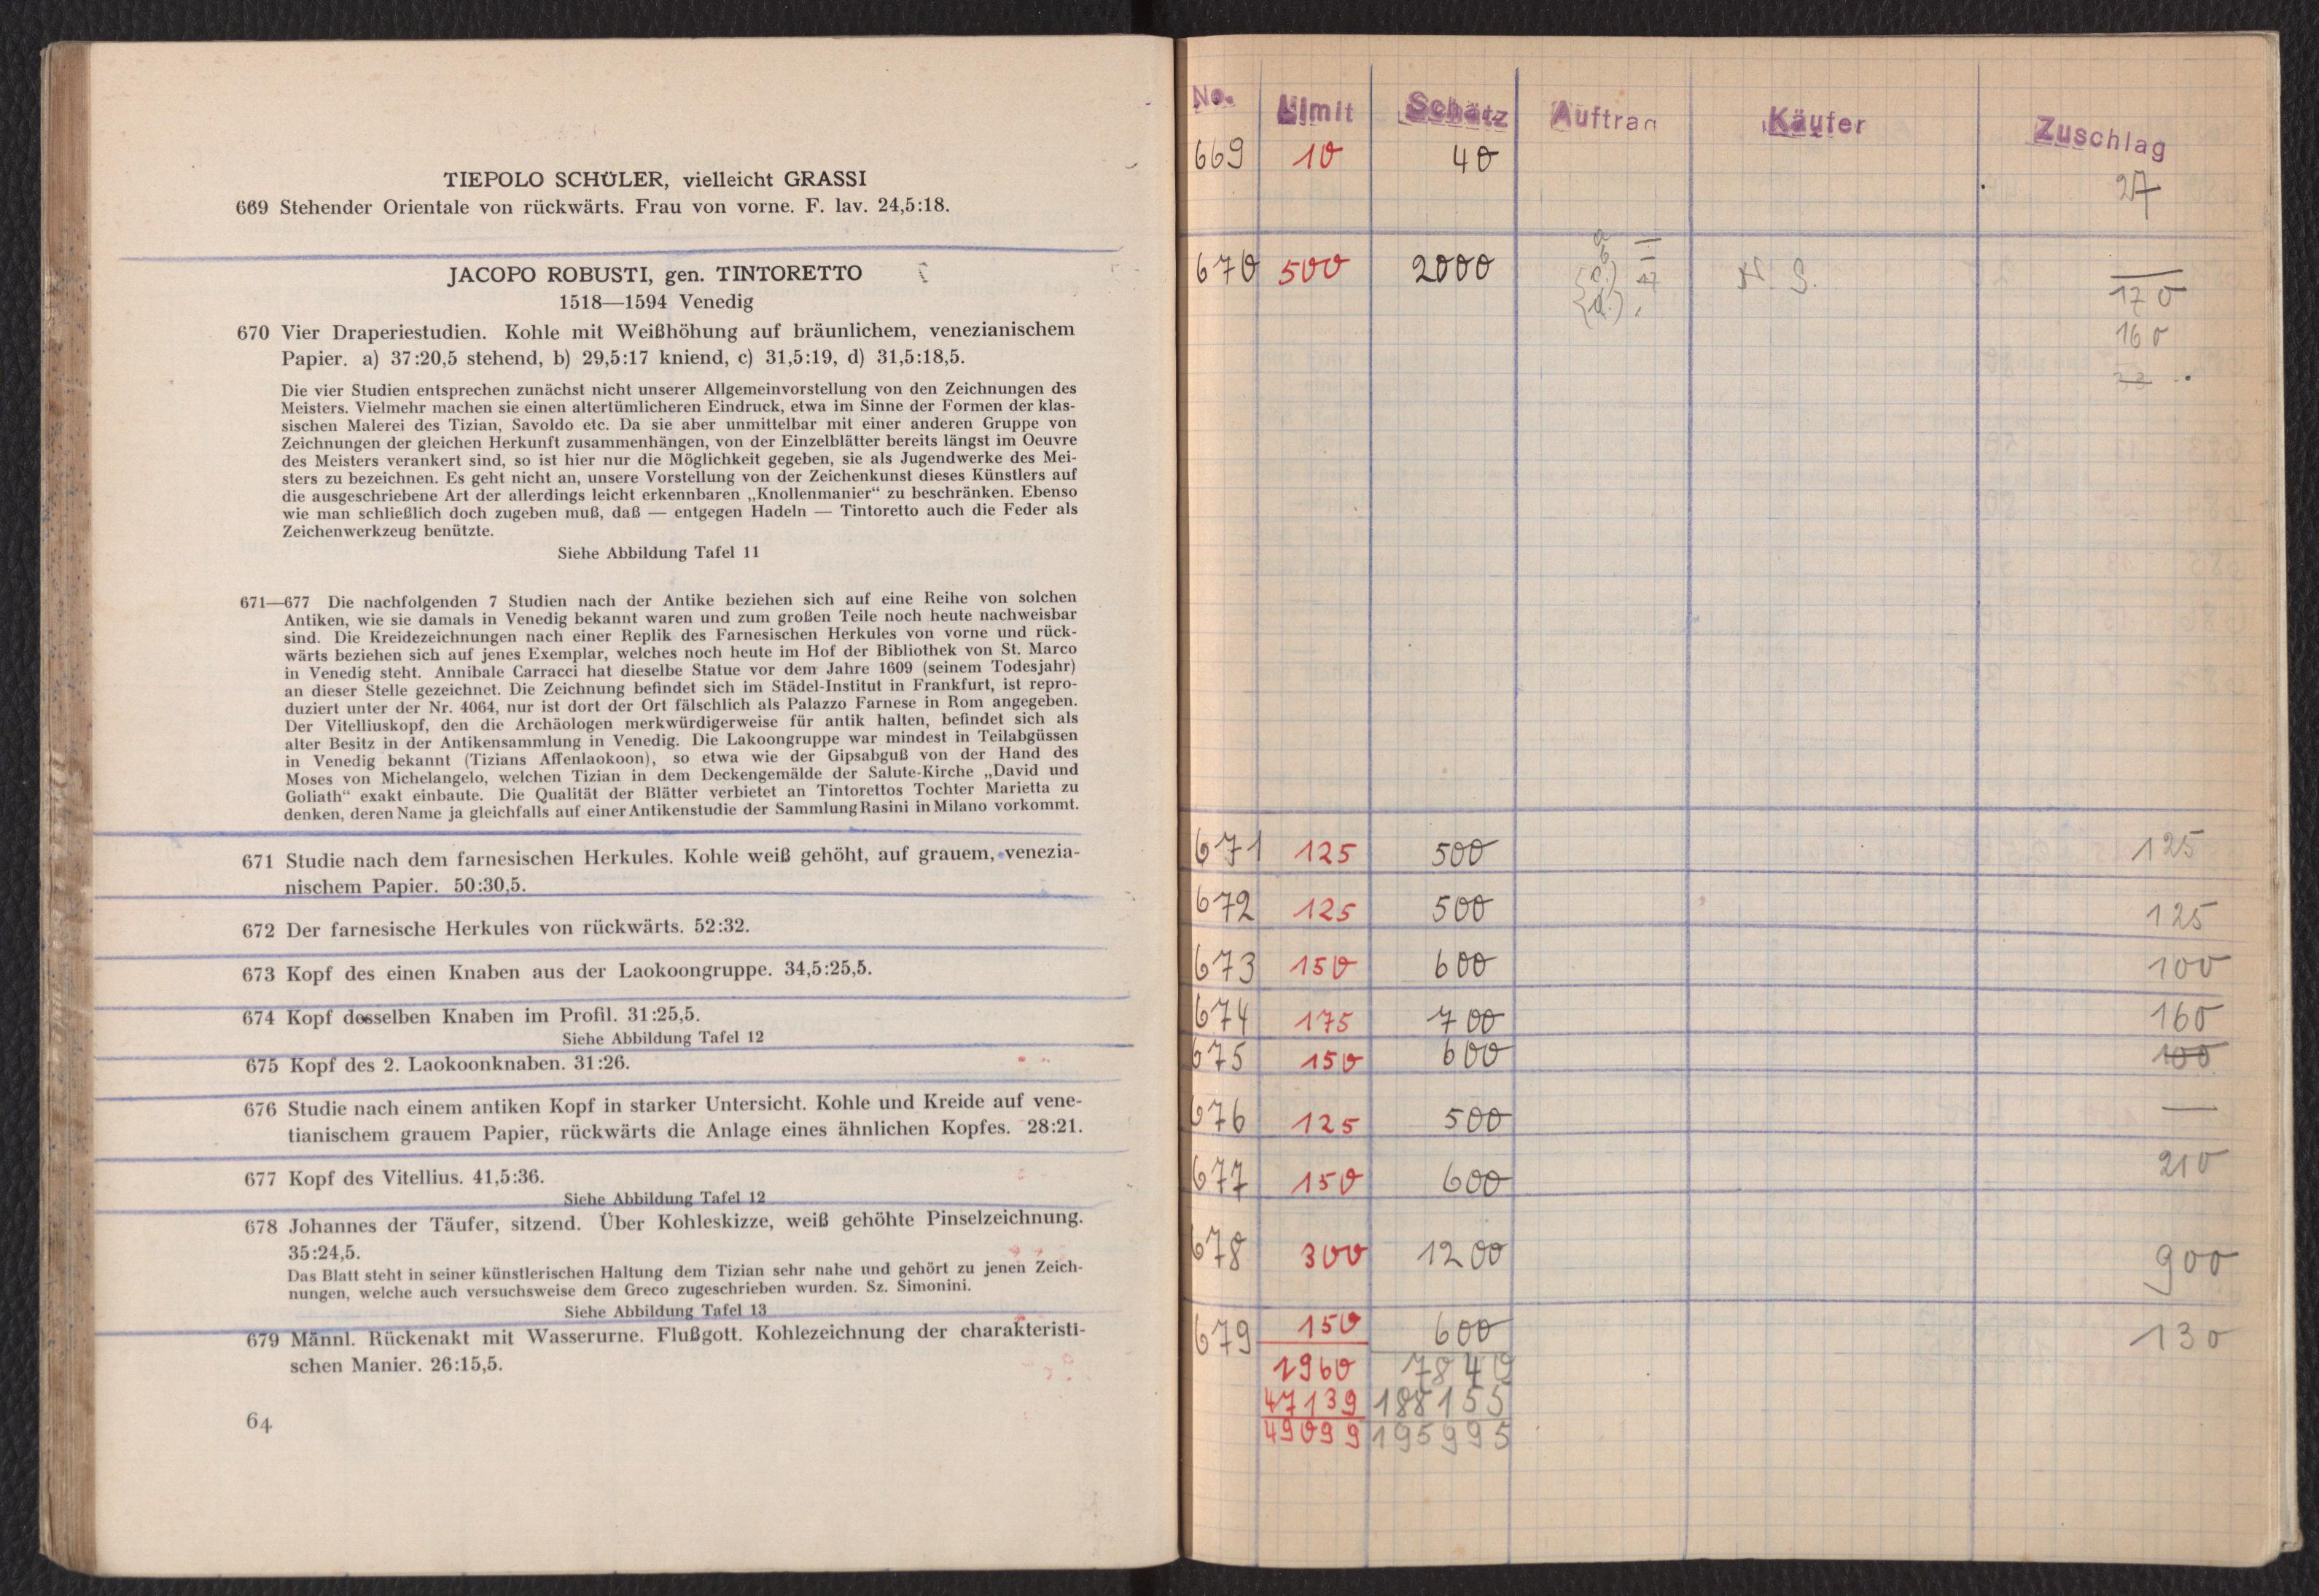 TIEPOLO SCHÜLER, vielleicht GRASSI
669 Stehender Orientale von rückwärts. Frau von vorne. F. lav. 24,5:18.
JACOPO ROBUSTI, gen. TINTORETTO
1518—1594 Venedig
670 Vier Draperiestudien. Kohle mit Weißhöhung auf bräunlichem, venezianischem
Papier. a) 37:20,5 stehend, b) 29,5:17 kniend, c) 31,5:19, d) 31,5:18,5.
Die vier Studien entsprechen zunächst nicht unserer Allgemeinvorstellung von den Zeichnungen des
Meisters. Vielmehr machen sie einen altertümlicheren Eindruck, etwa im Sinne der Formen der klas-
sischen Malerei des Tizian, Savoldo etc. Da sie aber unmittelbar mit einer anderen Gruppe von
Zeichnungen der gleichen Herkunft zusammenhängen, von der Einzelblätter bereits längst im Oeuvre
des Meisters verankert sind, so ist hier nur die Möglichkeit gegeben, sie als Jugendwerke des Mei-
sters zu bezeichnen. Es geht nicht an, unsere Vorstellung von der Zeichenkunst dieses Künstlers auf
die ausgeschriebene Art der allerdings leicht erkennbaren „Knollenmanier“ zu beschränken. Ebenso
wie man schließlich doch zugeben muß, daß — entgegen Hadeln — Tintoretto auch die Feder als
Zeichenwerkzeug benützte.
Siehe Abbildung Tafel 11
671—677 Die nachfolgenden 7 Studien nach der Antike beziehen sich auf eine Reihe von solchen
Antiken, wie sie damals in Venedig bekannt waren und zum großen Teile noch heute nachweisbar
sind. Die Kreidezeichnungen nach einer Replik des Farnesischen Herkules von vorne und rück-
wärts beziehen sich auf jenes Exemplar, welches noch heute im Hof der Bibliothek von St. Marco
in Venedig steht. Annibale Carracci hat dieselbe Statue vor dem Jahre 1609 (seinem Todesjahr)
an dieser Stelle gezeichnet. Die Zeichnung befindet sich im Städel-Institut in Frankfurt, ist repro-
duziert unter der Nr. 4064, nur ist dort der Ort fälschlich als Palazzo Farnese in Rom angegeben.
Der Vitelliuskopf, den die Archäologen merkwürdigerweise für antik halten, befindet sich als
alter Besitz in der Antikensammlung in Venedig. Die Lakoongruppe war mindest in Teilabgüssen
in Venedig bekannt (Tizians Affenlaokoon), so etwa wie der Gipsabguß von der Hand des
Moses von Michelangelo, welchen Tizian in dem Deckengemälde der Salute-Kirche „David und
Goliath“ exakt einbaute. Die Qualität der Blätter verbietet an Tintorettos Tochter Marietta zu
denken, deren Name ja gleichfalls auf einer Antikenstudie der Sammlung Rasini in Milano vorkommt.
671 Studie nach dem farnesischen Herkules. Kohle weiß gehöht, auf grauem, venezia-
nischem Papier. 50:30,5.
672 Der farnesische Herkules von rückwärts. 52:32.
673 Kopf des einen Knaben aus der Laokoongruppe. 34,5:25,5.
674 Kopf desselben Knaben im Profil. 31:25,5.
Siehe Abbildung Tafel 12
675 Kopf des 2. Laokoonknaben. 31:26.
676 Studie nach einem antiken Kopf in starker Untersicht. Kohle und Kreide auf vene-
tianischem grauem Papier, rückwärts die Anlage eines ähnlichen Kopfes. 28:21.
677 Kopf des Vitellius. 41,5:36.
Siehe Abbildung Tafel 12
678 Johannes der Täufer, sitzend. Über Kohleskizze, weiß gehöhte Pinselzeichnung.
35:24,5.
Das Blatt steht in seiner künstlerischen Haltung dem Tizian sehr nahe und gehört zu jenen Zeich-
nungen, welche auch versuchsweise dem Greco zugeschrieben wurden. Sz. Simonini.
Siehe Abbildung Tafel 13
679 Männl. Rückenakt mit Wasserurne. Flußgott. Kohlezeichnung der charakteristi-
schen Manier. 26:15,5.
64
No. Limit Schätz Auftrag Käufer Zuschlag
669 10 40 27
670 500 2000 N. S. —
170
160
671 125 500 125
672 125 500 125
673 150 600 100
674 175 700 160
675 150 600 100
676 125 500 —
677 150 600 210
678 300 1200 900
679 150 600 130
1960 7840
47139 188155
49099 195995